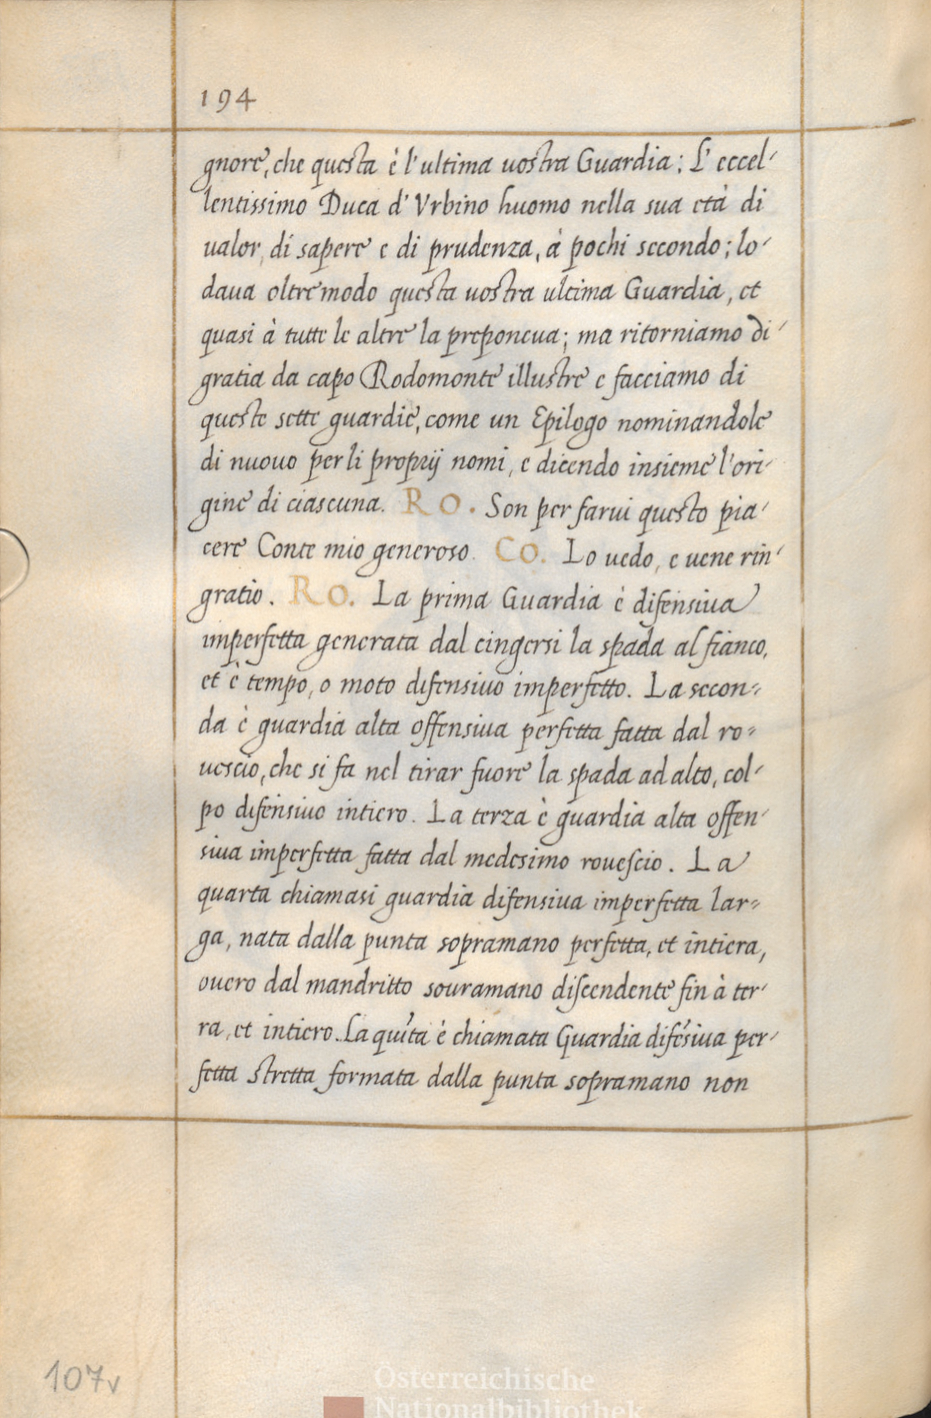 194
gnore, che questa è l'ultima uostra Guardia: L' eccel-
lentissimo Duca d' Vrbino huomo nella sua età di
ualor, di sapere e di prudenza, à pochi secondo; lo-
daua oltremodo questa uostra ultima Guardia, et
quasi à tutte le altre la preponeua; ma ritorniamo di
gratia da capo Rodomonte illustre e facciamo di
queste sette guardie, come un Epilogo nominandole
di nuouo per li proprij nomi, e dicendo insieme l'ori-
gine di ciascuna. RO. Son per farui questo pia-
cere Conte mio generoso. CO. Lo uedo, e uene rin-
gratio. RO. La prima Guardia è difensiua
imperfetta generata dal cingersi la spada al fianco,
et è tempo, o moto difensiuo imperfetto. La secon-
da è guardia alta offensiua perfetta fatta dal ro-
uescio, che si fa nel tirar fuore la spada ad alto, col-
po difensiuo intiero. La terza è guardia alta offen-
siua imperfetta fatta dal medesimo rouescio. La
quarta chiamasi guardia difensiua imperfetta lar-
ga, nata dalla punta sopramano perfetta, et intiera,
ouero dal mandritto souramano discendente fin à ter-
ra, et intiero. La quīta è chiamata Guardia difēsiua per-
fetta stretta formata dalla punta sopramano non
107v
Österreichische
Nationalbibliothek